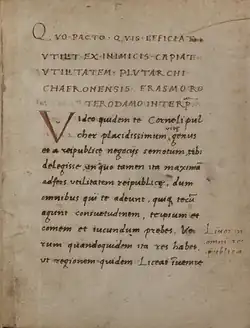 QVO PACTO QVIS EFFICIAT
VTILIT EX INIMICIS CAPIAT
VTILITATEM, PLVTARCHI
CHAERONENSIS ERASMO RO
TERODAMO INTERP.
Video quidem te Corneli pul
cher placidissimum, genus
et a reipublicę negocijs semotum, tibi
delegisse in quo tamen ita maximā
adfers utilitatem reipublicę, dum
omnibus qui te adeunt, quiq tecū
agunt consuetudinem, te ipsum et
comem et iucundum prebes. Ve
rum quandoquidem ita res habet
ut regionem quidem liceat inuenire
omni re
publica